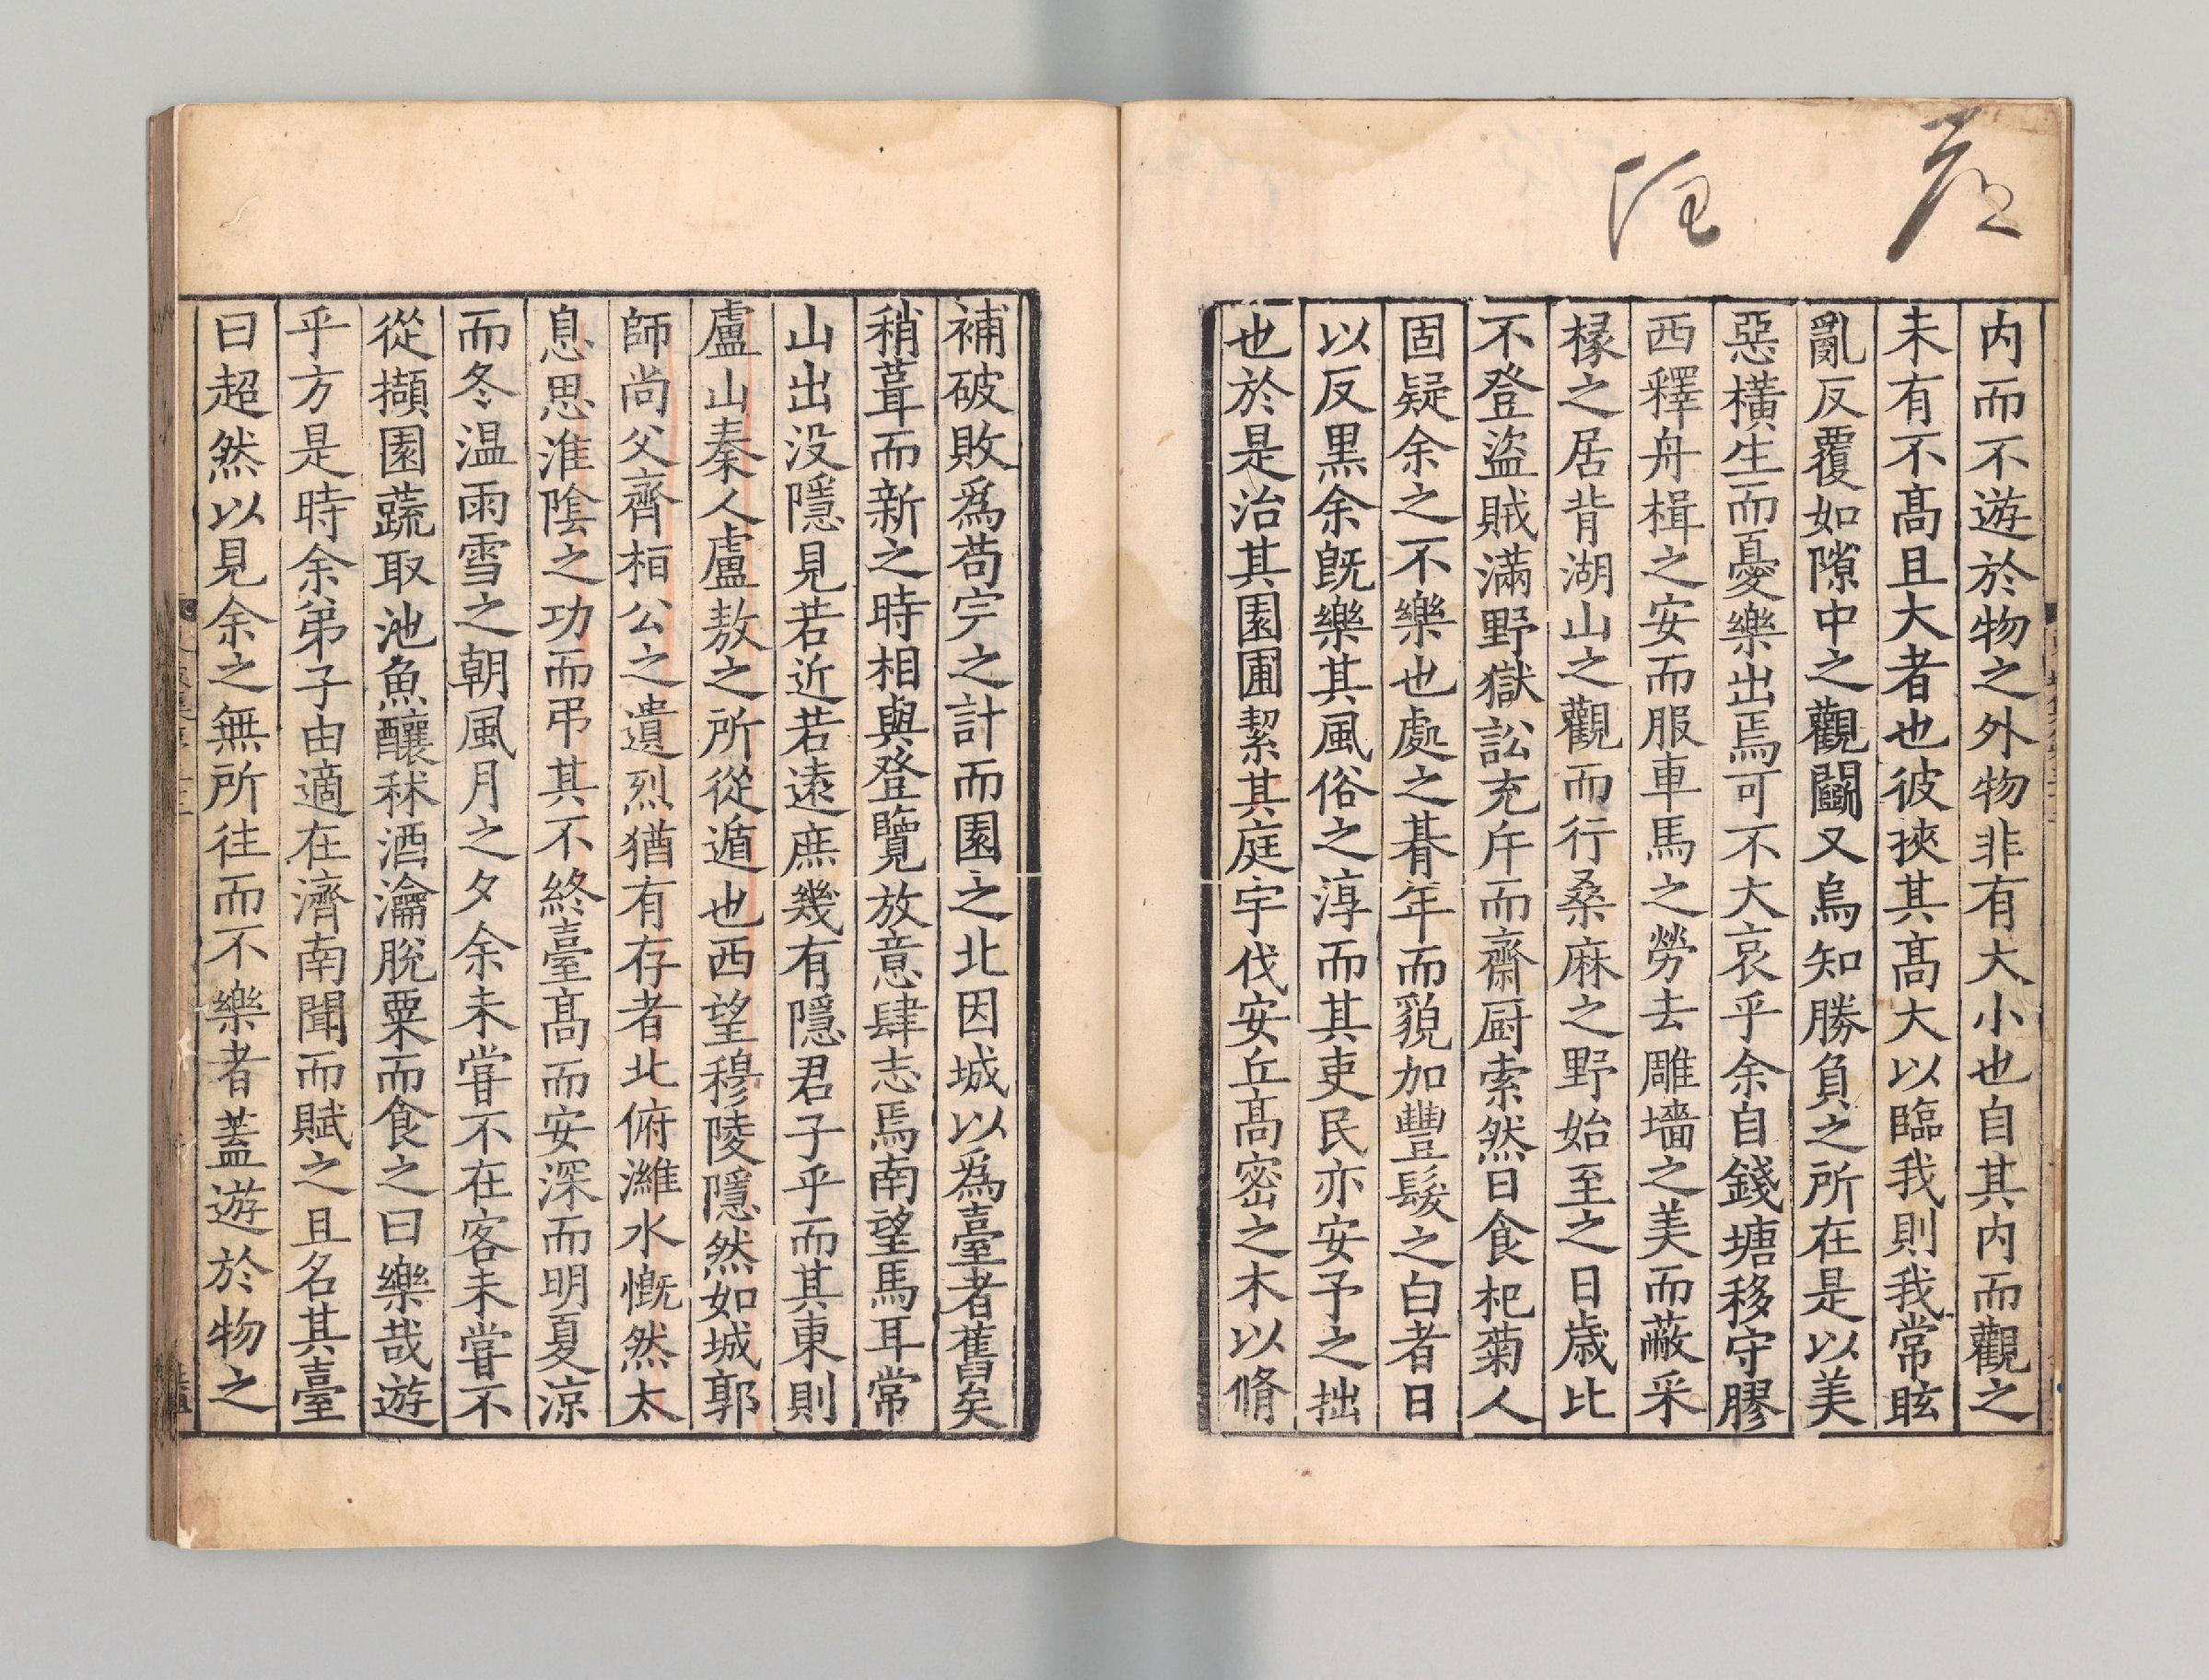 内而不遊於物之外物非有大小也自其内而觀之
未有不髙且大者也彼挾其髙大以臨我則我常眩
亂反覆如隙中之觀鬭又烏知勝負之所在是以美
惡橫生而憂樂出焉可不大哀乎余自錢塘移守膠
西釋舟楫之安而服車馬之勞去雕墻之美而蔽采
椽之居背湖山之觀而行桑麻之野始至之日歳比
不登盜賊滿野獄訟充斥而齋厨索然日食杞菊人
固疑余之不樂也處之朞年而貌加豐髮之白者日
以反黒余旣樂其風俗之淳而其吏民亦安予之拙
也於是治其園圃絜其庭宇伐安丘髙密之木以脩
補破敗爲苟完之計而園之北因城以爲臺者舊矣
稍葺而新之時相與登覽放意肆志焉南望馬耳常
山出没隱見若近若逺庶幾有隱君子乎而其東則
盧山秦人盧敖之所從遁也西望穆陵隱然如城郭
師尚父齊桓公之遺烈猶有存者北俯濰水慨然太
息思淮隂之功而弔其不終臺髙而安深而明夏涼
而冬温雨雪之朝風月之夕余未甞不在客未甞不
從擷園蔬取池魚釀秫酒瀹脱粟而食之曰樂哉遊
乎方是時余弟子由適在濟南聞而賦之且名其臺
曰超然以見余之無所往而不樂者蓋遊於物之